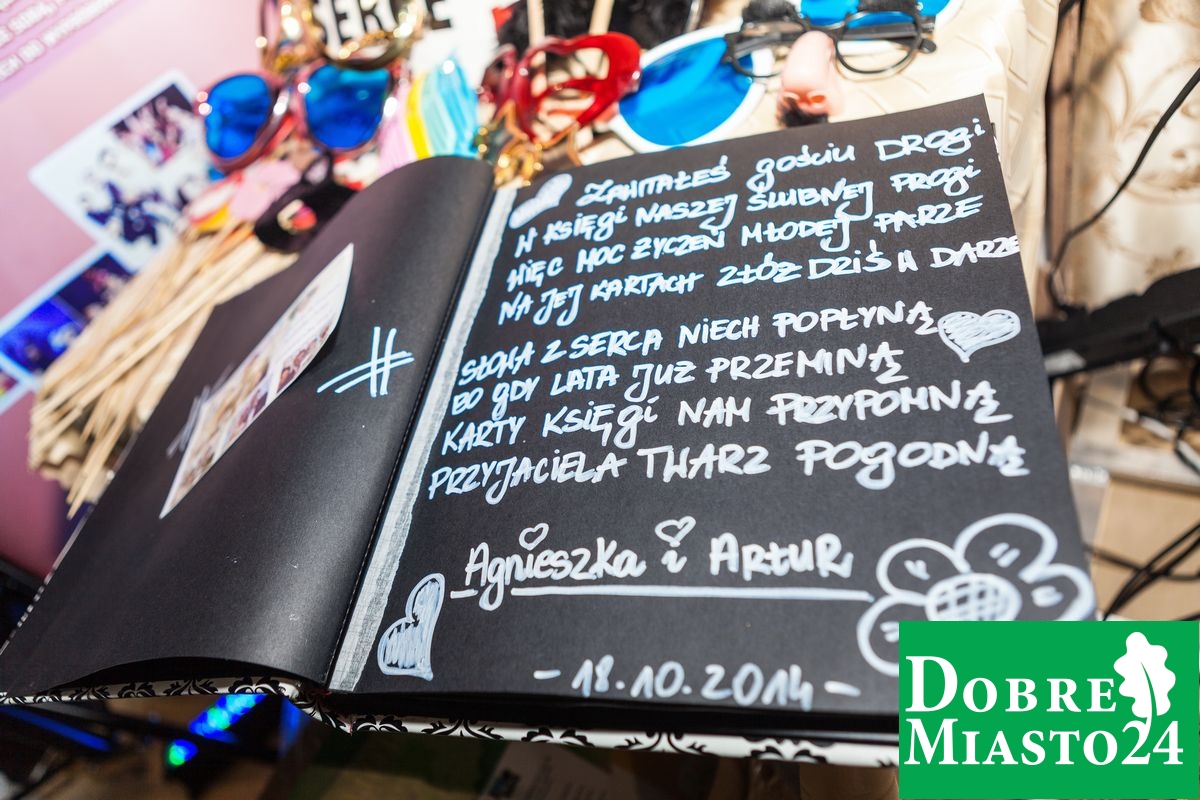 SERCE
ZAWITAŁEŚ gościu DROgi
W KSIĘgi NASZEJ ŚLUBNEJ PROgi
WIĘC MOC ŻYCZEŃ MŁODEJ PARZE
NA JEJ KARTACH ZŁÓŻ DZIŚ W DARZE
SŁOWA Z SERCA NIECH POPŁYNĄ
BO gDY LATA JUŻ PRZEMINĄ
KARTY KSIĘgi NAM PRZYPOMNĄ
PRZYJACIELA TWARZ POgODNĄ
Agnieszka i ARTUR
- 18.10.2014 -
DOBRE
MIASTO24